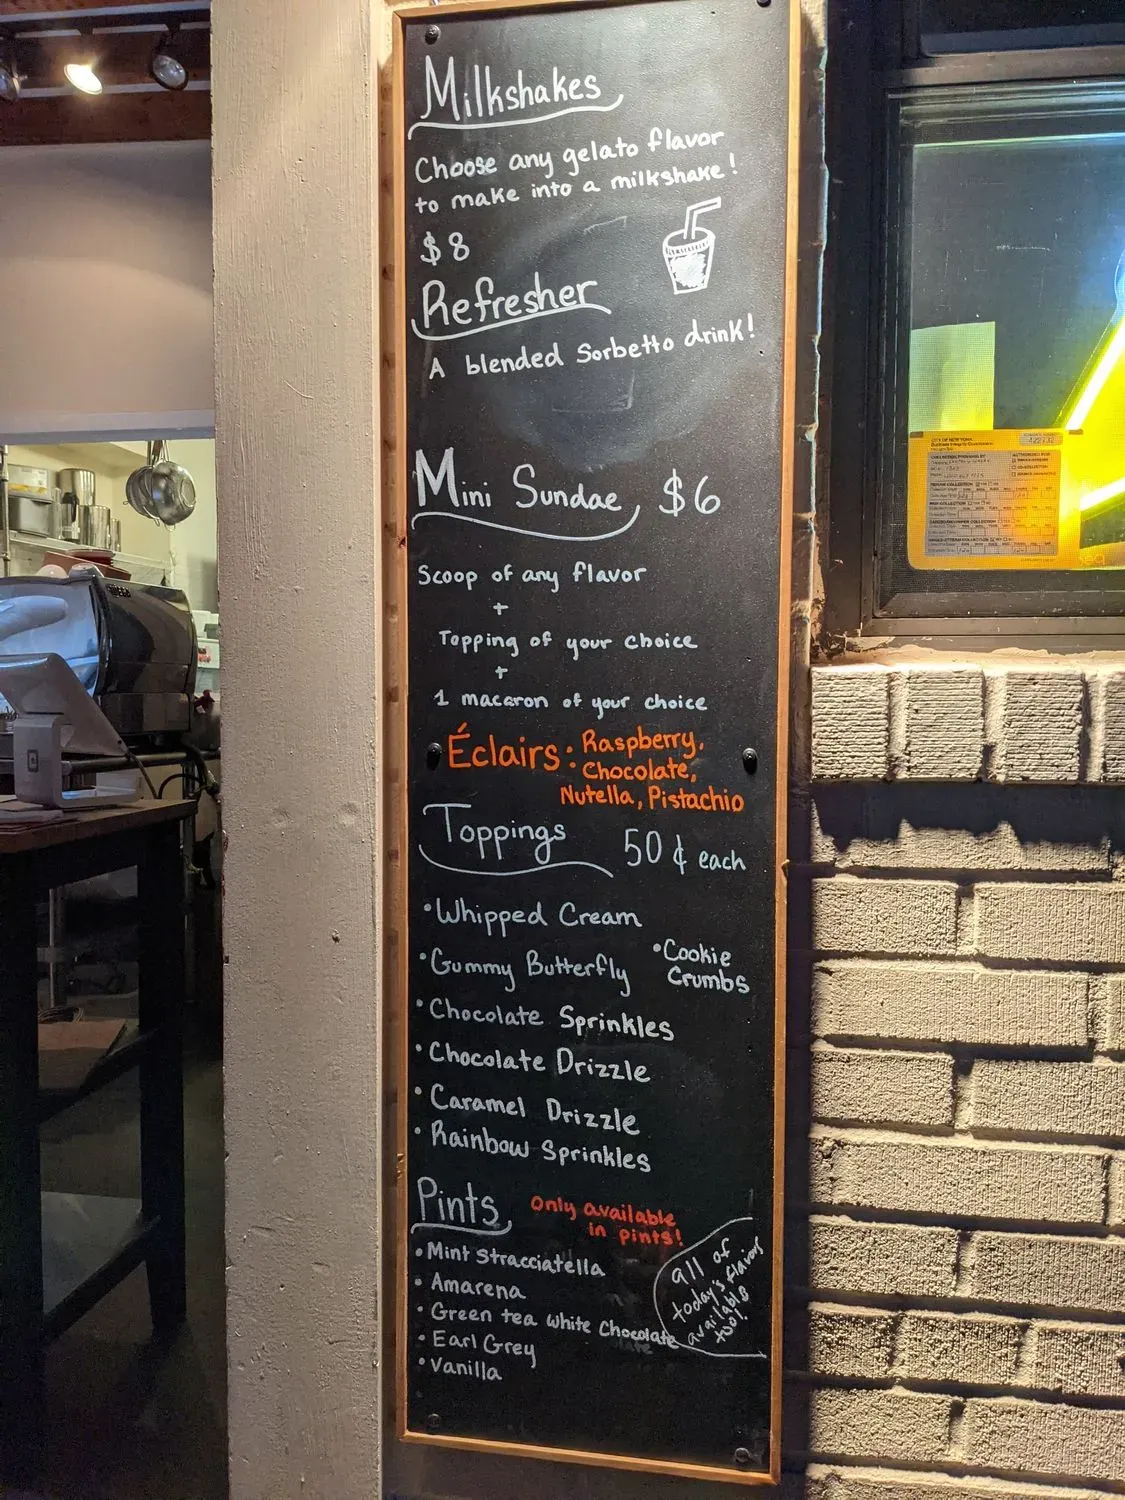 Milkshakes
Choose any gelato flavor
to make into a milkshake!
$8
Refresher
A blended Sorbetto drink!
Mini Sundae, $6
Scoop of any flavor
+
Topping of your choice
+
1 macaron of your choice
Éclairs: Raspberry,
Chocolate,
Nutella, Pistachio
Toppings 50¢ each
•Whipped Cream
•Gummy Butterfly
•Cookie
Crumbs
•Chocolate Sprinkles
•Chocolate Drizzle
•Caramel Drizzle
•Rainbow Sprinkles
Pints
Only available
in pints!
•Mint Stracciatella
•Amarena
•Green tea white Chocolate
•Earl Grey
•Vanilla
all of
today's flavor
available
too!
CITY OF NEW YORK